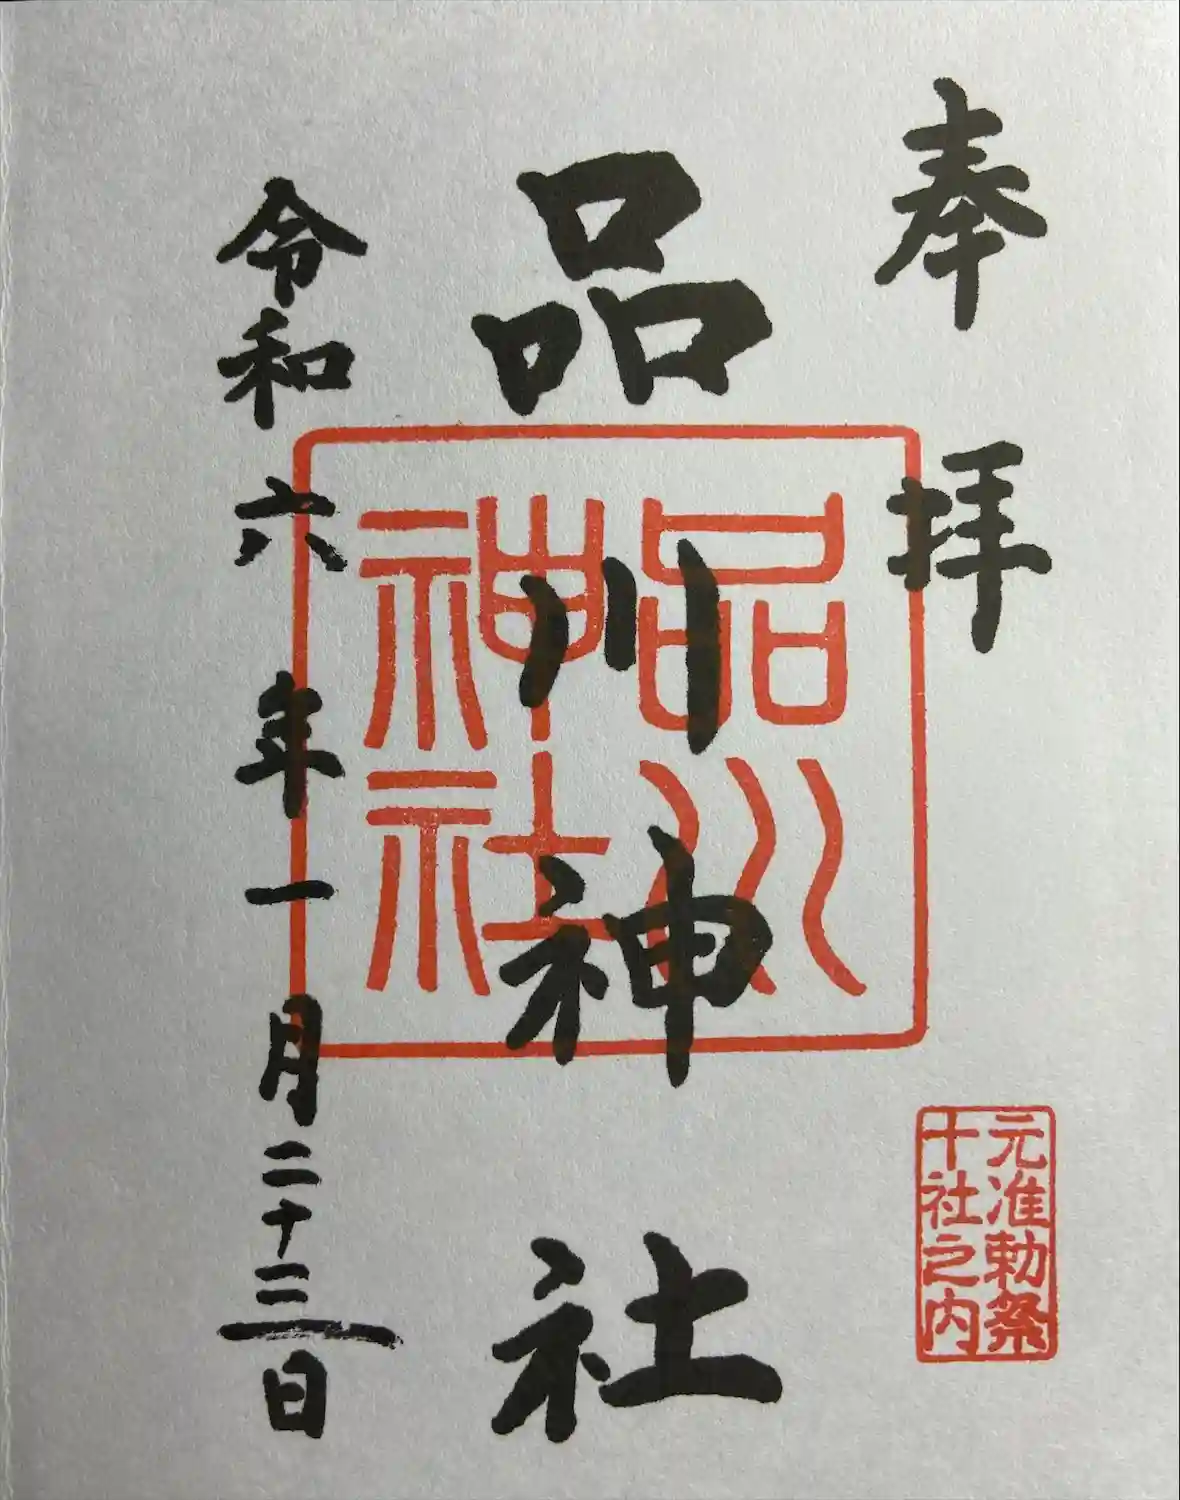 奉拝
元准勅祭
十社之内
品川神社
品川
神社
令和六年一月二十三日